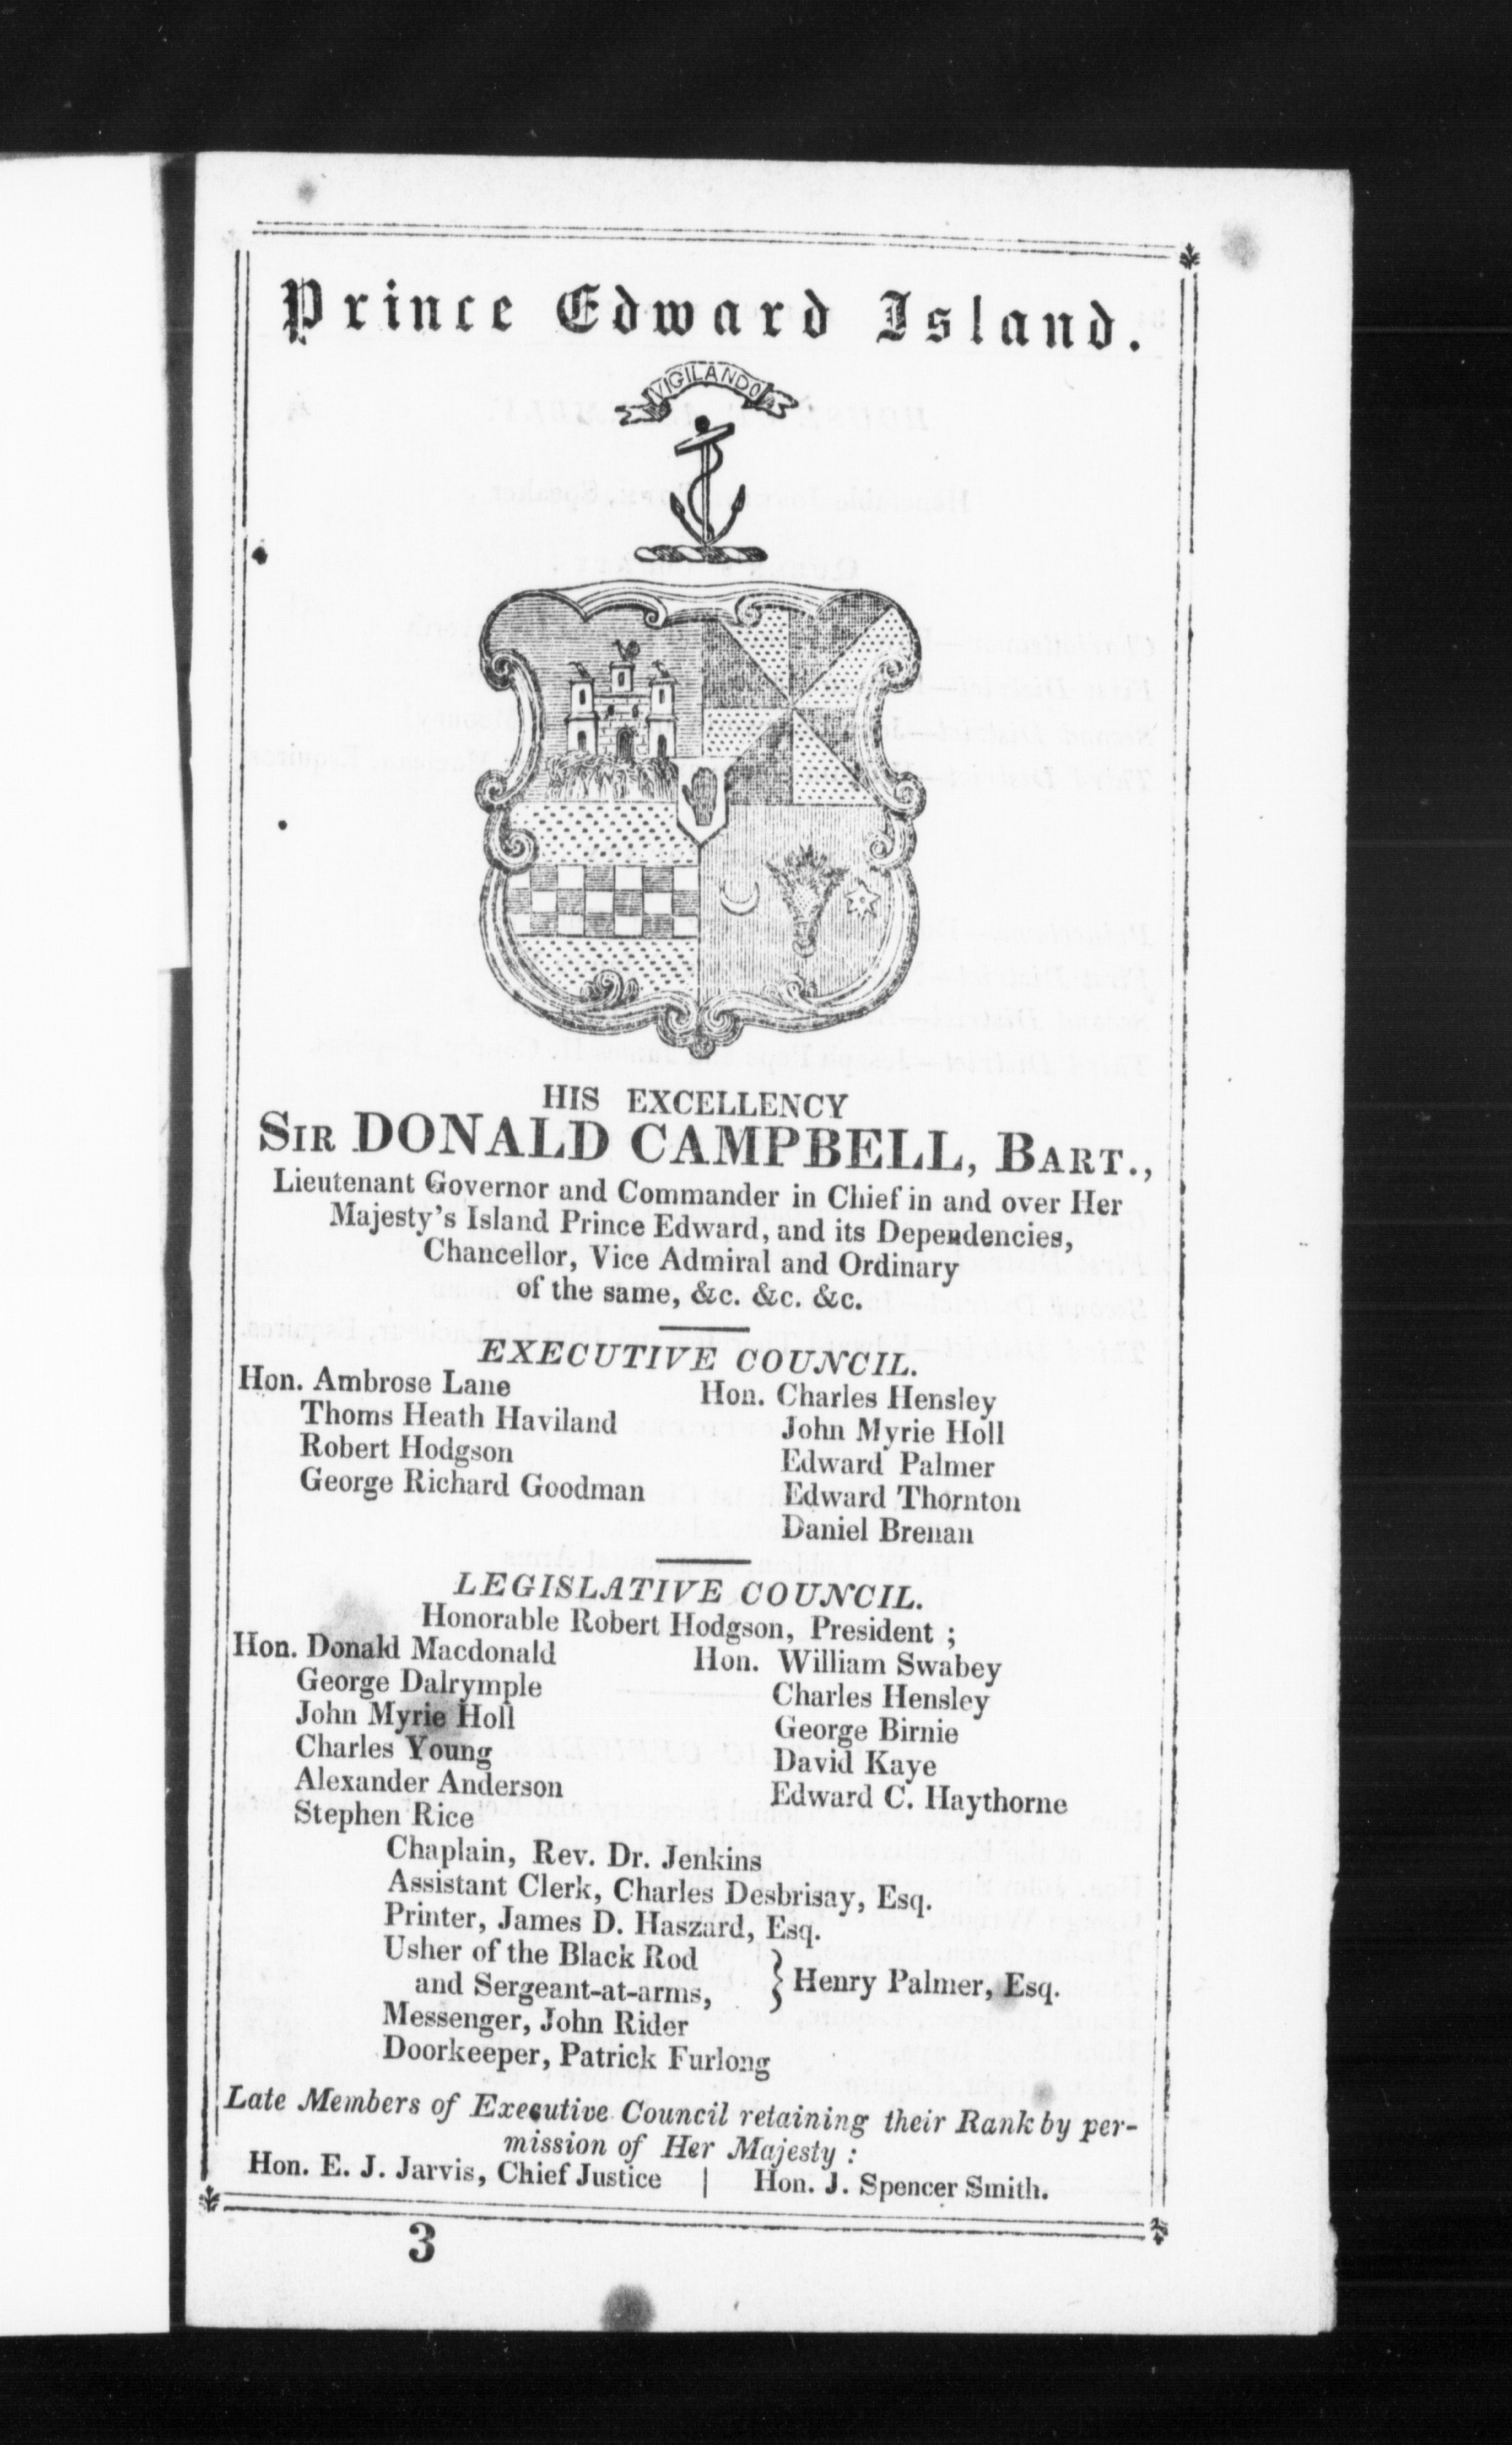 Prince Edward Island.
VIGILANDO
HIS EXCELLENCY
SIR DONALD CAMPBELL, BART.,
Lieutenant Governor and Commander in Chief in and over Her
Majesty's Island Prince Edward, and its Dependencies,
Chancellor, Vice Admiral and Ordinary
of the same, &c. &c. &c.
EXECUTIVE COUNCIL.
Hon. Ambrose Lane
Thoms Heath Haviland
Robert Hodgson
George Richard Goodman
Hon. Charles Hensley
John Myrie Holl
Edward Palmer
Edward Thornton
Daniel Brenan
LEGISLATIVE COUNCIL.
Honorable Robert Hodgson, President ;
Hon. Donald Macdonald
George Dalrymple
John Myrie Holl
Charles Young
Alexander Anderson
Stephen Rice
Hon. William Swabey
Charles Hensley
George Birnie
David Kaye
Edward C. Haythorne
Chaplain, Rev. Dr. Jenkins
Assistant Clerk, Charles Desbrisay, Esq.
Printer, James D. Haszard, Esq.
Usher of the Black Rod
and Sergeant-at-arms, } Henry Palmer, Esq.
Messenger, John Rider
Doorkeeper, Patrick Furlong
Late Members of Executive Council retaining their Rank by per-
mission of Her Majesty :
Hon. E. J. Jarvis, Chief Justice | Hon. J. Spencer Smith.
3